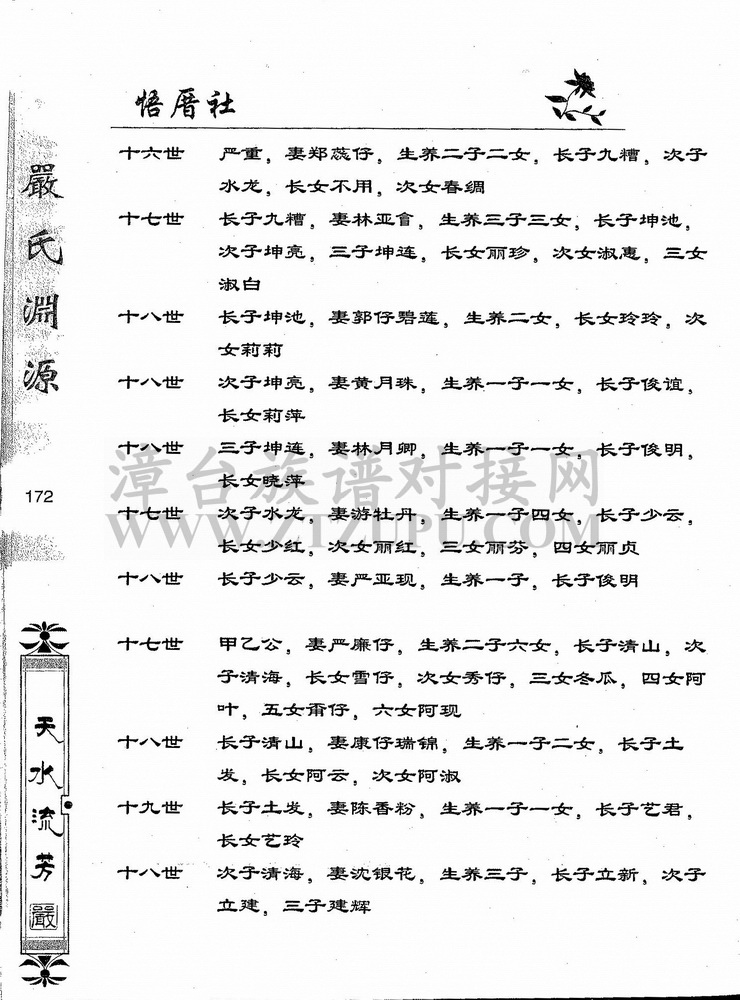 悟厝社
十六世 严重，妻郑蕊仔，生养二子二女，长子九糟，次子
水龙，长女不用，次女春绸
十七世 长子九糟，妻林亚肏，生养三子三女，长子坤池，
次子坤亮，三子坤连，长女丽珍，次女淑惠，三女
淑白
十八世 长子坤池，妻郭仔碧莲，生养二女，长女玲玲，次
女莉莉
十八世 次子坤亮，妻黄月珠，生养一子一女，长子俊谊，
长女莉萍
十八世 三子坤连，妻林月卿，生养一子一女，长子俊明，
长女晓萍
十七世 次子水龙，妻游牡丹，生养一子四女，长子少云，
长女少红，次女丽红，三女丽芬，四女丽贞
十八世 长子少云，妻严亚现，生养一子，长子俊明
十七世 甲乙公，妻严廉仔，生养二子六女，长子清山，次
子清海，长女雪仔，次女秀仔，三女冬瓜，四女阿
叶，五女甭仔，六女阿现
十八世 长子清山，妻康仔瑞锦，生养一子二女，长子土
发，长女阿云，次女阿淑
十九世 长子土发，妻陈香粉，生养一子一女，长子艺君，
长女艺玲
十八世 次子清海，妻沈银花，生养三子，长子立新，次子
立建，三子建辉
嚴氏淵源
172
天水流芳
嚴
漳台族谱对接网
WWW.ZTZUPU.COM